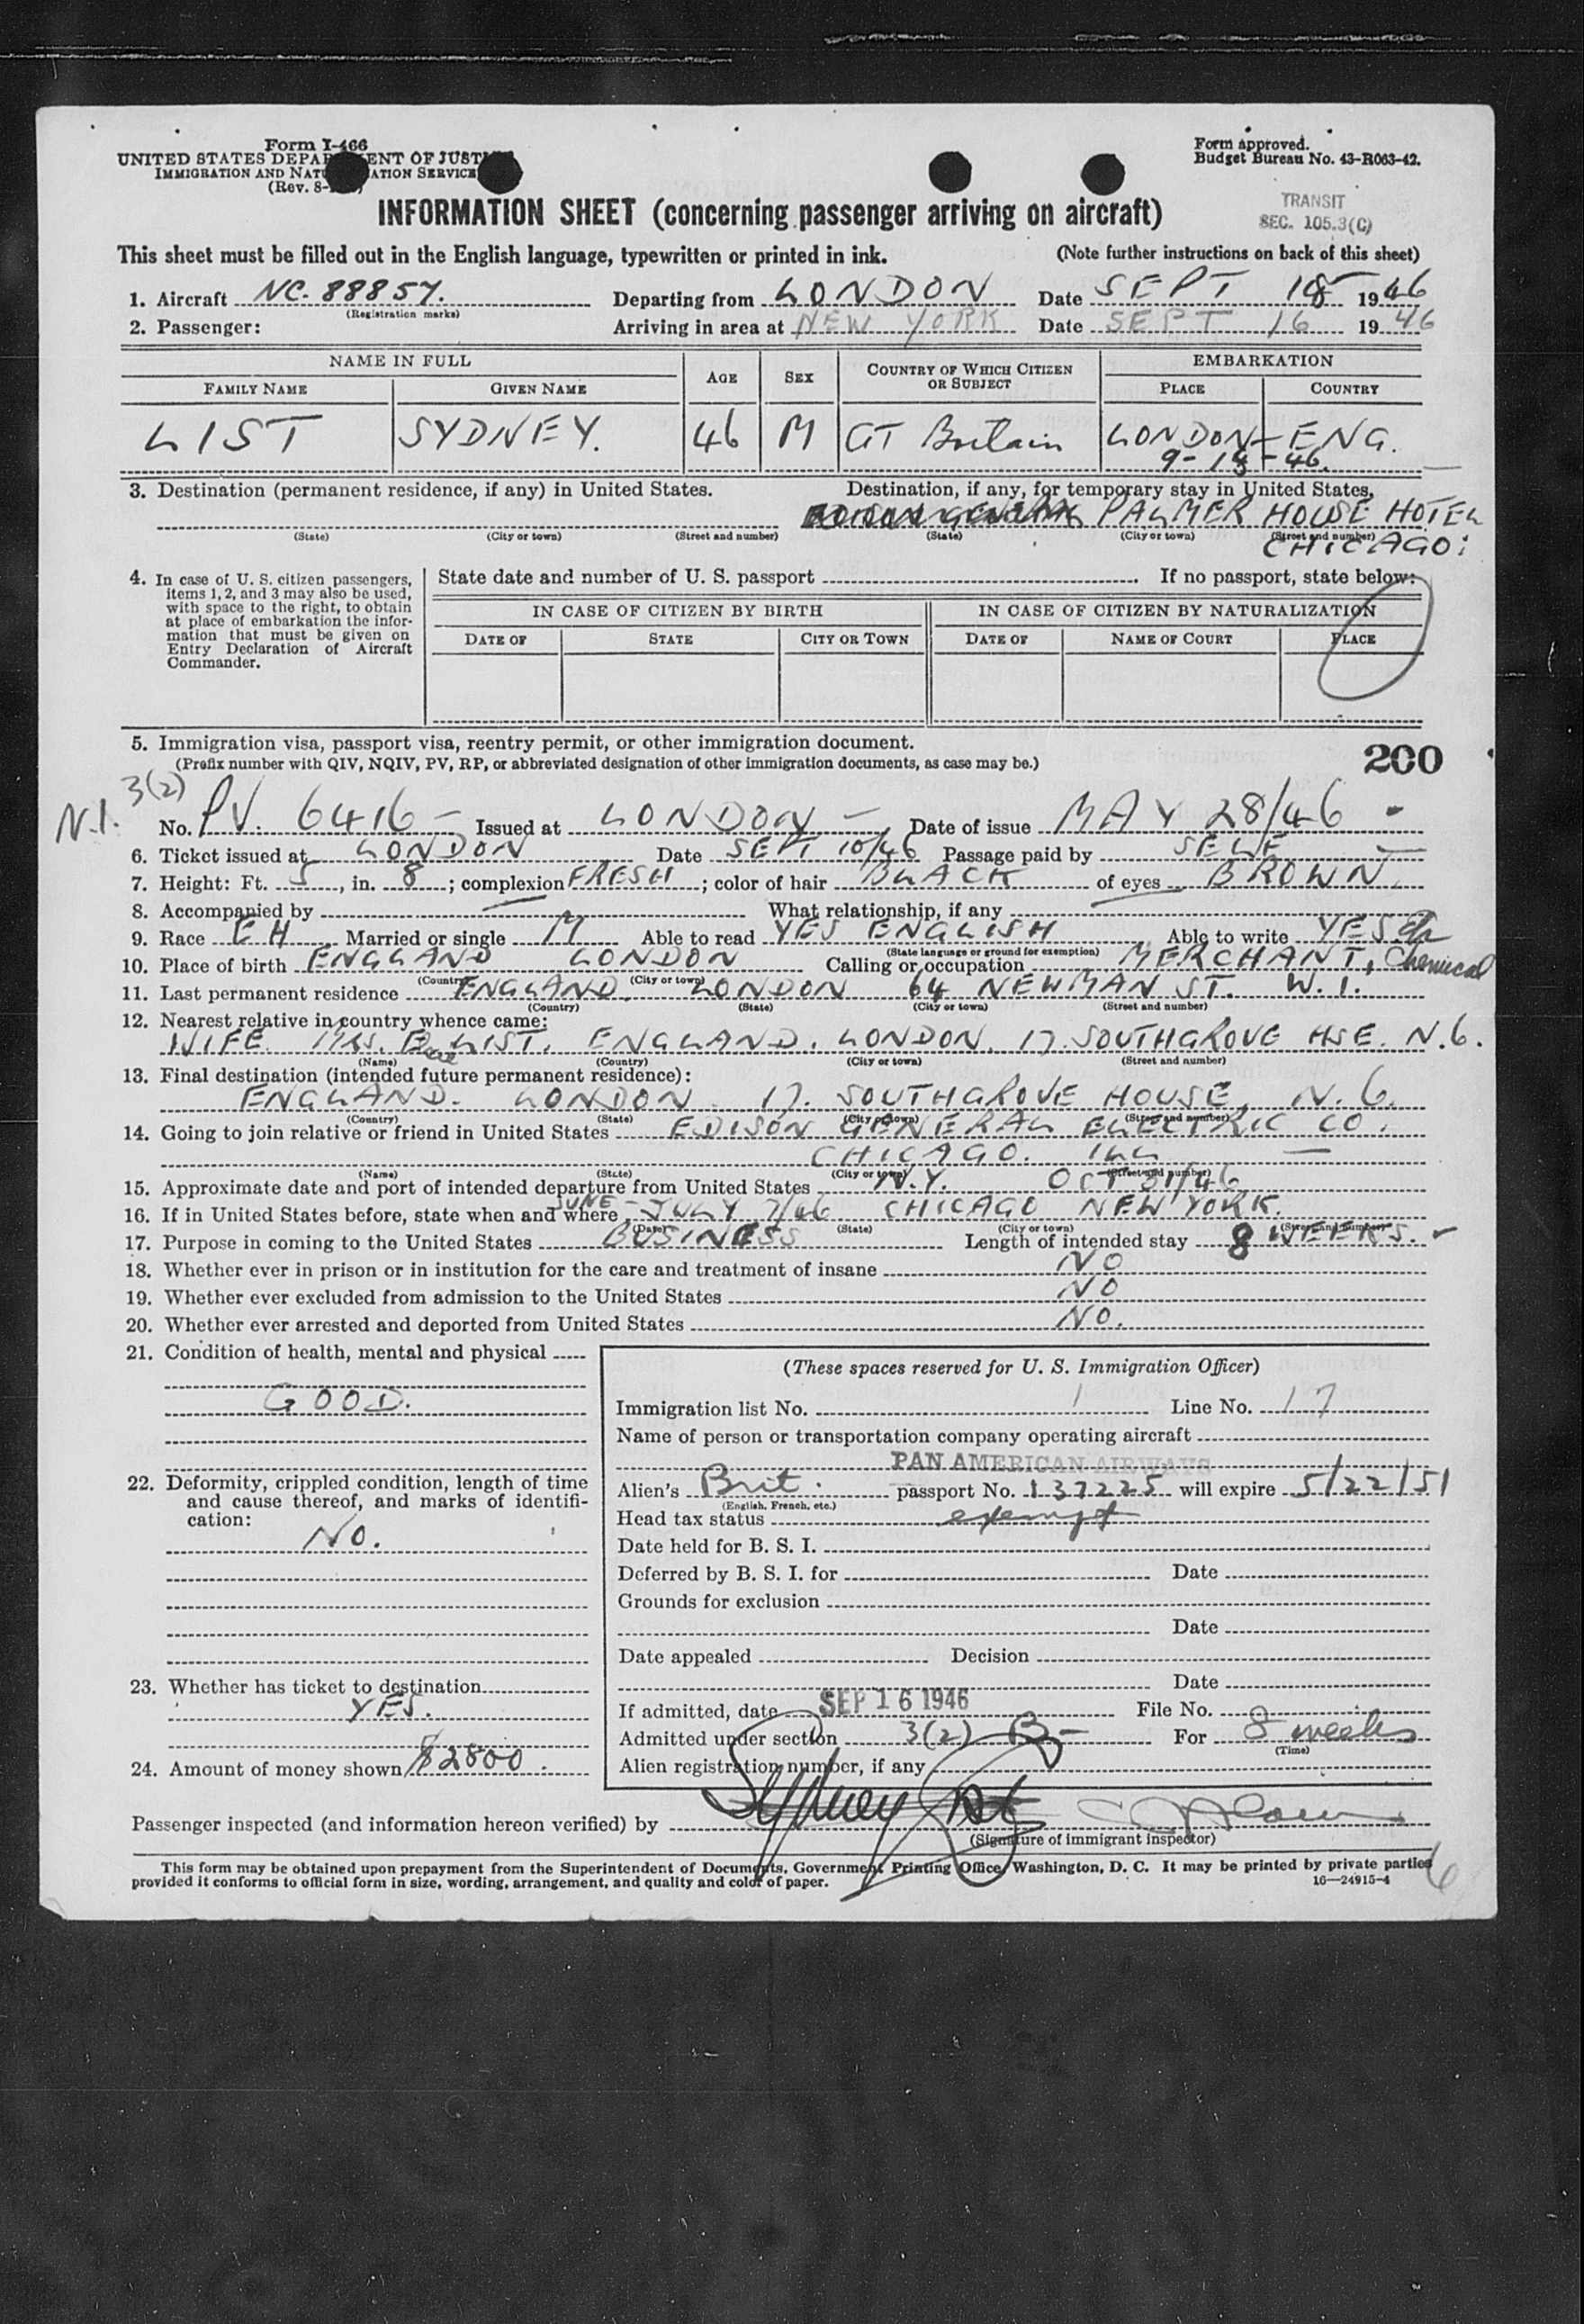 Form I-466
UNITED STATES DEPARTMENT OF JUSTICE
IMMIGRATION AND NATURALIZATION SERVICE
(Rev. 8-
Form approved.
Budget Bureau No. 43-R063-42.
TRANSIT
SEC. 105.3(C)
INFORMATION SHEET (concerning passenger arriving on aircraft)
This sheet must be filled out in the English language, typewritten or printed in ink. (Note further instructions on back of this sheet)
1. Aircraft NC. 88857. Departing from LONDON Date SEPT 15 1946
(Registration marks)
2. Passenger: Arriving in area at NEW YORK Date SEPT 16 1946
NAME IN FULL AGE SEX COUNTRY OF WHICH CITIZEN OR SUBJECT EMBARKATION
FAMILY NAME GIVEN NAME PLACE COUNTRY
LIST SYDNEY. 46 M GT Britain LONDON - ENG.
9- -46.
3. Destination (permanent residence, if any) in United States. Destination, if any, for temporary stay in United States,
PALMER HOUSE HOTEL
(State) (City or town) (Street and number) (State) (City or town) (Street and number)
CHICAGO:
4. In case of U. S. citizen passengers, items 1, 2, and 3 may also be used, with space to the right, to obtain at place of embarkation the information that must be given on Entry Declaration of Aircraft Commander.
State date and number of U. S. passport If no passport, state below:
IN CASE OF CITIZEN BY BIRTH IN CASE OF CITIZEN BY NATURALIZATION
DATE OF STATE CITY OR TOWN DATE OF NAME OF COURT PLACE
5. Immigration visa, passport visa, reentry permit, or other immigration document.
(Prefix number with QIV, NQIV, PV, RP, or abbreviated designation of other immigration documents, as case may be.)
200
3(2)
N.I.
No. PV. 6416 - Issued at LONDON - Date of issue MAY 28/46 -
6. Ticket issued at LONDON Date SEPT 10/46 Passage paid by SELF
7. Height: Ft. 5, in. 8; complexion FRESH; color of hair BLACK of eyes BROWN
8. Accompanied by What relationship, if any
9. Race EH Married or single M Able to read YES ENGLISH Able to write YES
(State language or ground for exemption)
10. Place of birth ENGLAND LONDON Calling or occupation MERCHANT, Chemical
(Country) (City or town)
11. Last permanent residence ENGLAND LONDON 64 NEWMAN ST. W.1.
(Country) (State) (City or town) (Street and number)
12. Nearest relative in country whence came:
WIFE MRS. LIST, ENGLAND. LONDON, 17. SOUTHGROVE HSE. N.6.
(Name) (Country) (City or town) (Street and number)
13. Final destination (intended future permanent residence):
ENGLAND. LONDON 17. SOUTHGROVE HOUSE, N.6.
(Country) (State) (City or town) (Street and number)
14. Going to join relative or friend in United States EDISON GENERAL ELECTRIC CO.
CHICAGO. ILL
(Name) (State) (City or town) (Street and number)
15. Approximate date and port of intended departure from United States N.Y. OCT 31/46
16. If in United States before, state when and where JUNE - JULY 7/46 CHICAGO NEW YORK.
(Date) (State) (City or town) (Street and number)
17. Purpose in coming to the United States BUSINESS Length of intended stay 8 WEEKS.
18. Whether ever in prison or in institution for the care and treatment of insane NO
19. Whether ever excluded from admission to the United States NO
20. Whether ever arrested and deported from United States NO.
21. Condition of health, mental and physical
GOOD.
22. Deformity, crippled condition, length of time and cause thereof, and marks of identification:
NO.
23. Whether has ticket to destination
YES.
24. Amount of money shown $2800.
(These spaces reserved for U. S. Immigration Officer)
Immigration list No. 1 Line No. 17
Name of person or transportation company operating aircraft
PAN AMERICAN AIRWAYS
Alien's Brit. passport No. 137225 will expire 5/22/51
(English, French, etc.)
Head tax status exempt
Date held for B. S. I.
Deferred by B. S. I. for Date
Grounds for exclusion
Date
Date appealed Decision
Date
If admitted, date SEP 16 1946 File No.
Admitted under section 3(2) B- For 8 weeks
(Time)
Alien registration number, if any
Passenger inspected (and information hereon verified) by Sydney List
(Signature of immigrant inspector)
This form may be obtained upon prepayment from the Superintendent of Documents, Government Printing Office, Washington, D. C. It may be printed by private parties
provided it conforms to official form in size, wording, arrangement, and quality and color of paper. 16—24915-4
6